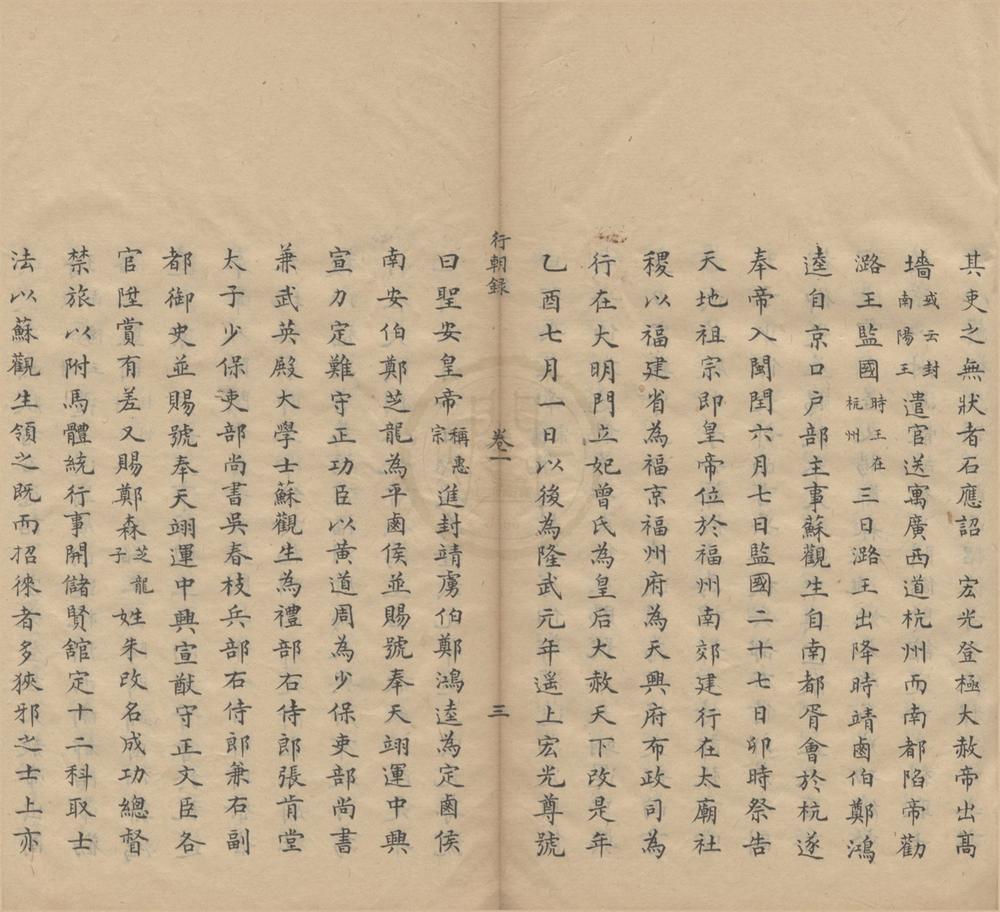 其吏之無狀者石應詔　宏光登極大赦帝出髙
墻或云封南陽王遣官送寓廣西道杭州而南都陷帝勸
潞王監國時王在杭州三日潞王出降時靖鹵伯鄭鴻
逵自京口户部主事蘇觀生自南都胥會於杭遂
奉帝入閩閏六月七日監國二十七日卯時祭告
天地祖宗即皇帝位於福州南郊建行在太廟社
稷以福建省為福京福州府為天興府布政司為
行在大明門立妃曾氏為皇后大赦天下改是年
乙酉七月一日以後為隆武元年遥上宏光尊號
行朝録　卷一　三
曰聖安皇帝稱惠宗進封靖虜伯鄭鴻逵為定鹵侯
南安伯鄭芝龍為平鹵侯並賜號奉天翊運中興
宣力定難守正功臣以黄道周為少保吏部尚書
兼武英殿大學士蘇觀生為禮部右侍郎張肯堂
太子少保吏部尚書吳春枝兵部右侍郎兼右副
都御史並賜號奉天翊運中興宣猷守正文臣各
官陞賞有差又賜鄭森芝龍子姓朱改名成功總督
禁旅以附馬體統行事開儲賢舘定十二科取士
法以蘇觀生領之既而招徠者多狹邪之士上亦